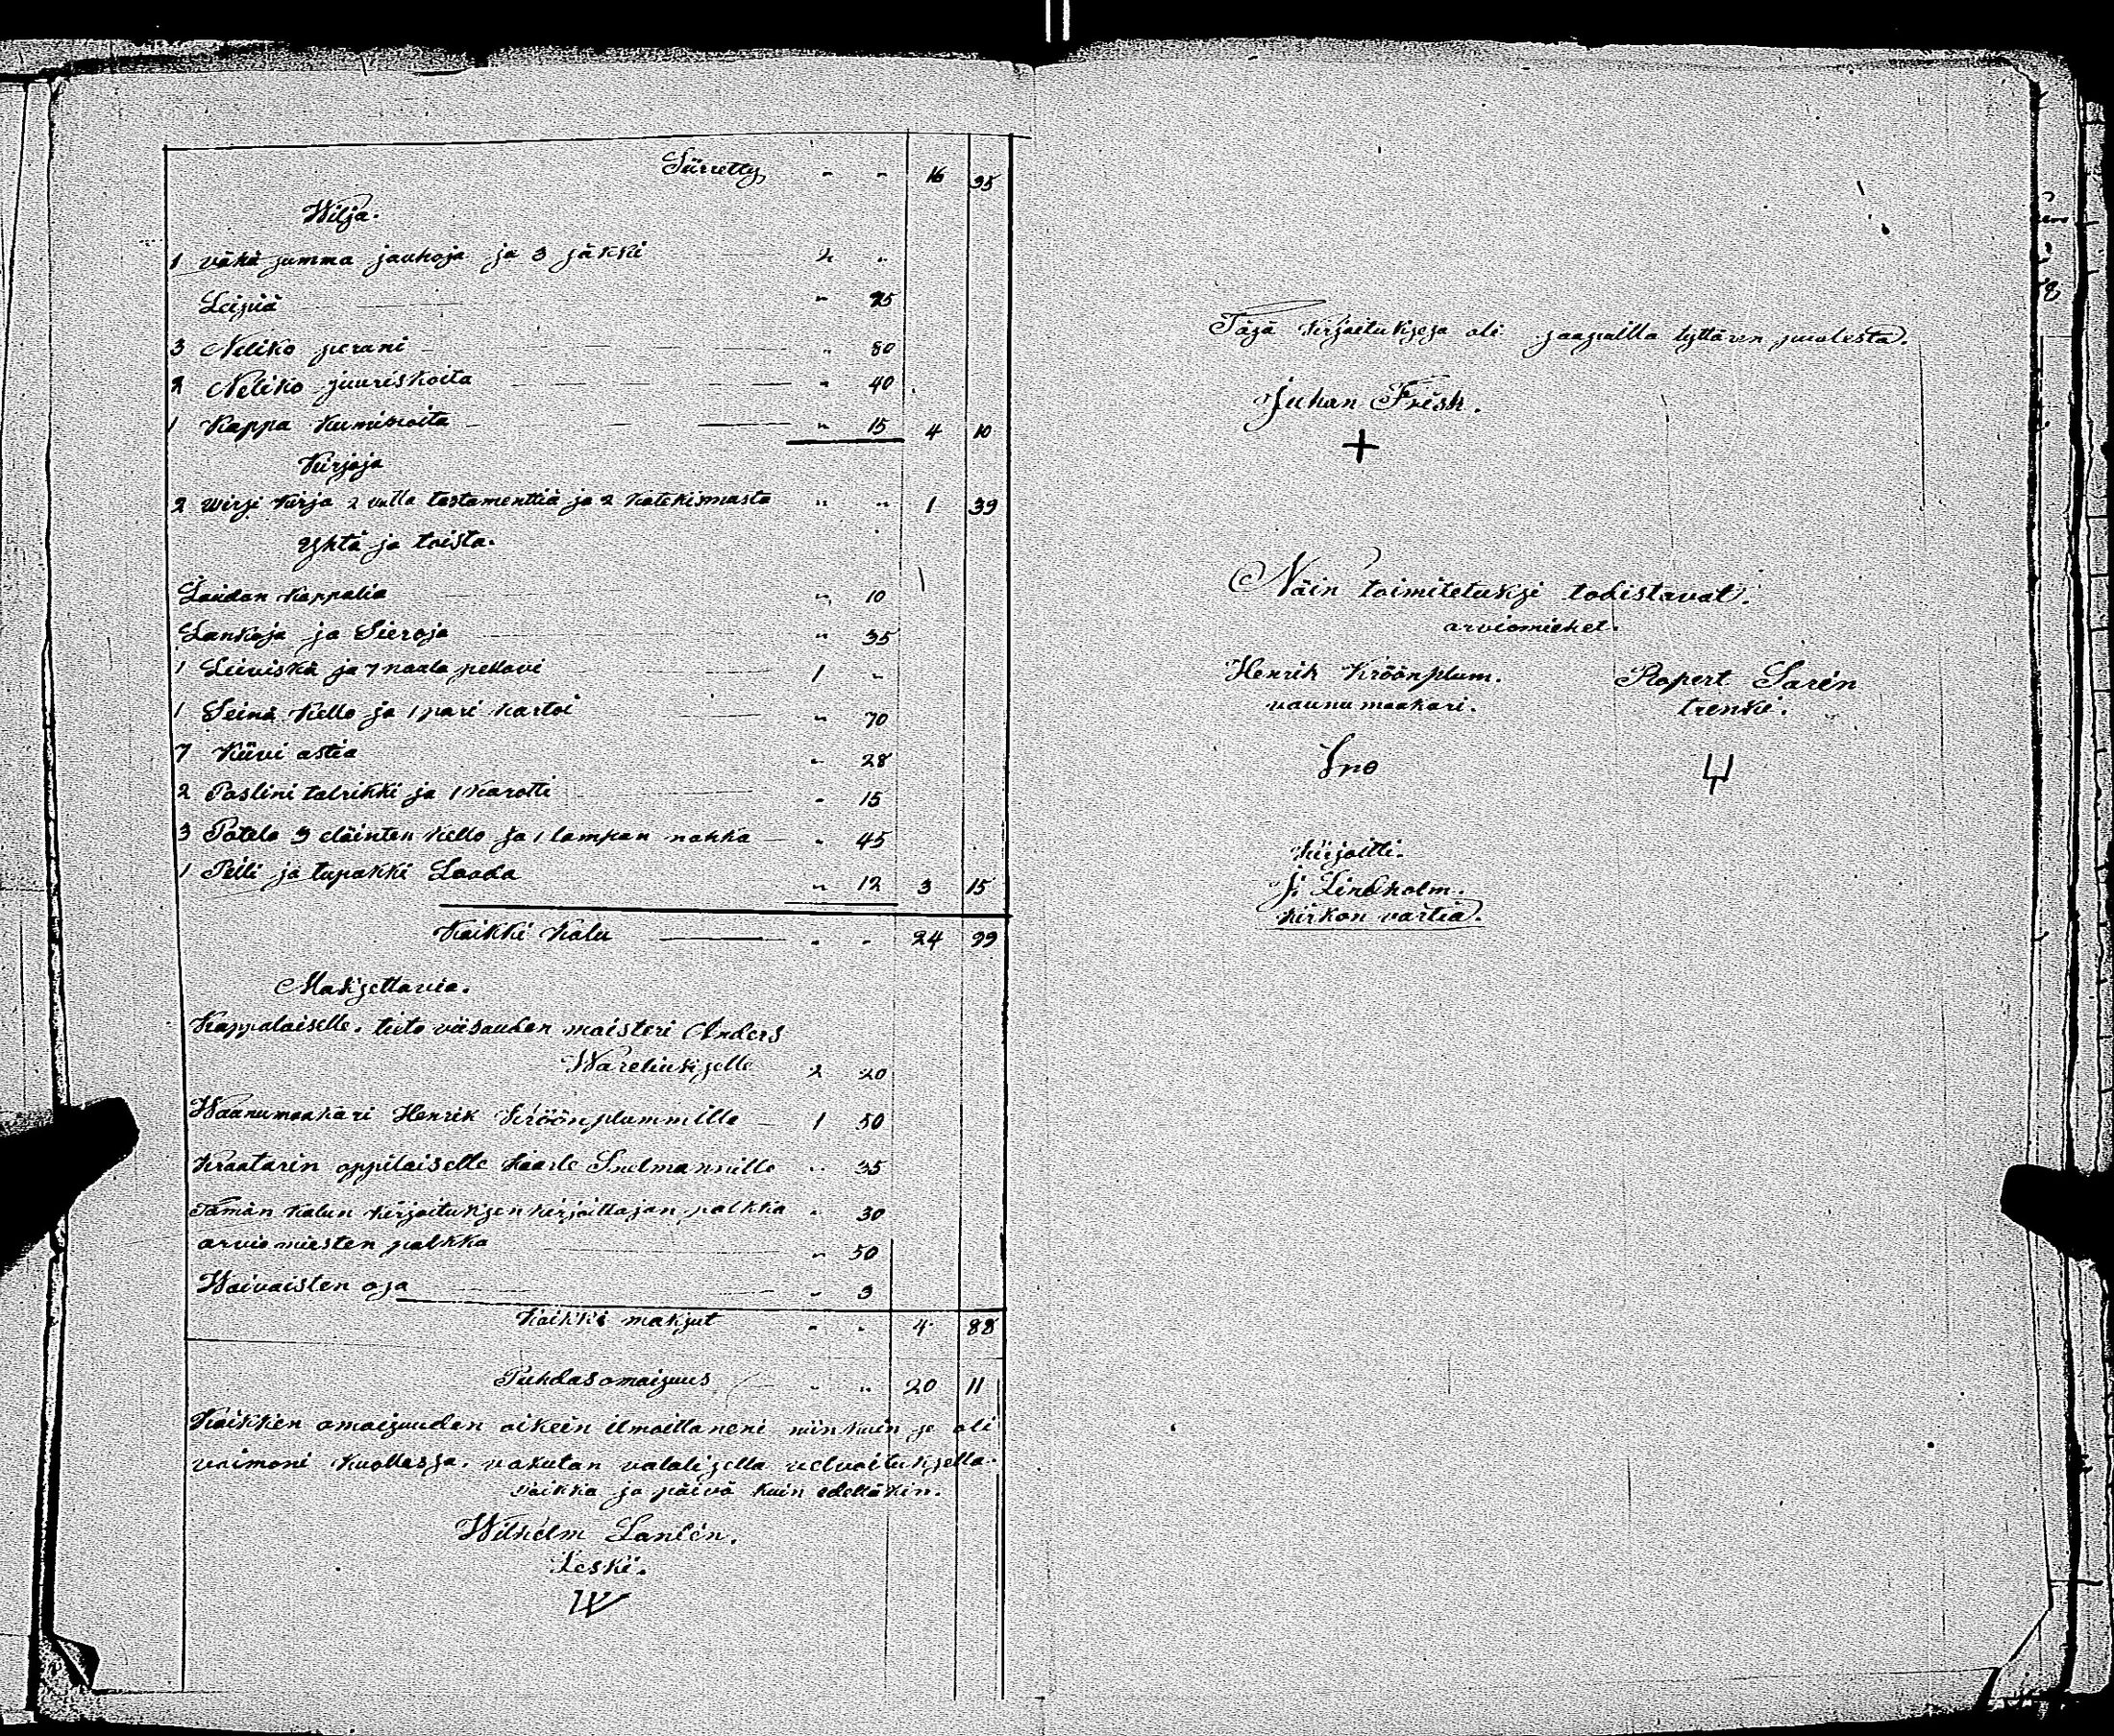 Siirretty " " 16 95
Wilja.
1 vähä summa jauhoja ja 3 säkki 2 "
Leipiä " 25
3 Neliko perani " 80
2 Neliko juuriskoita " 40
1 Kappa Kumiskoita " 15 4 10
Kirjoja
2 wirsi Kirja 2 vutta testamenttiä ja 2 Katekismusta " " 1 39
Yhtä ja toista.
Laudan Kappalia " 10
Lankoja ja Sieroja " 35
1 Leiviskä ja 7 naula pellavi 1 "
1 Seinä Kello ja 1 pari Kartoi " 70
7 Kiivi astia " 28
2 Poslini talrikki ja 1 Karotti " 15
3 Potela 3 eläinten Kello ja 1 lampan nahka " 45
1 Peili ja tupakki Laada " 12 3 15
Kaikki Kalu " " 24 99
Maksettavia.
Kappalaiselle. tieto viisauden maisteri Anders
Wareliukselle 2 20
Waunumaakari Henrik Kröönplummille 1 50
Kraatarin oppilaiselle Kaarle Snelmannille " 35
Tämän Kalun Kirjoituksen Kirjoittajan palkka " 30
arvio miesten palkka " 50
Waivaisten osa " 3
Kaikki maksut " " 4 88
Puhdas omaisuus " " 20 11
Kaikken omaisuuden oikein ilmoittaneni niinkuin se oli
vaimoni Kuollessa. vakutan valalisella velvoituksella.
Paikka ja päivä Kuin edelläkin.
Wilhelm Lanlén.
Leski.
Täsä Kirjoituksesa oli saapuilla tyttären puolesta.
Juhan Frisk.
Näin toimitetuksi todistavat.
arviomiehet.
Henrik Kröönplum. Ropert Sarén
vaunu maakari. trenki.
Kirjoitti.
J. Lindholm.
Kirkon vartia.